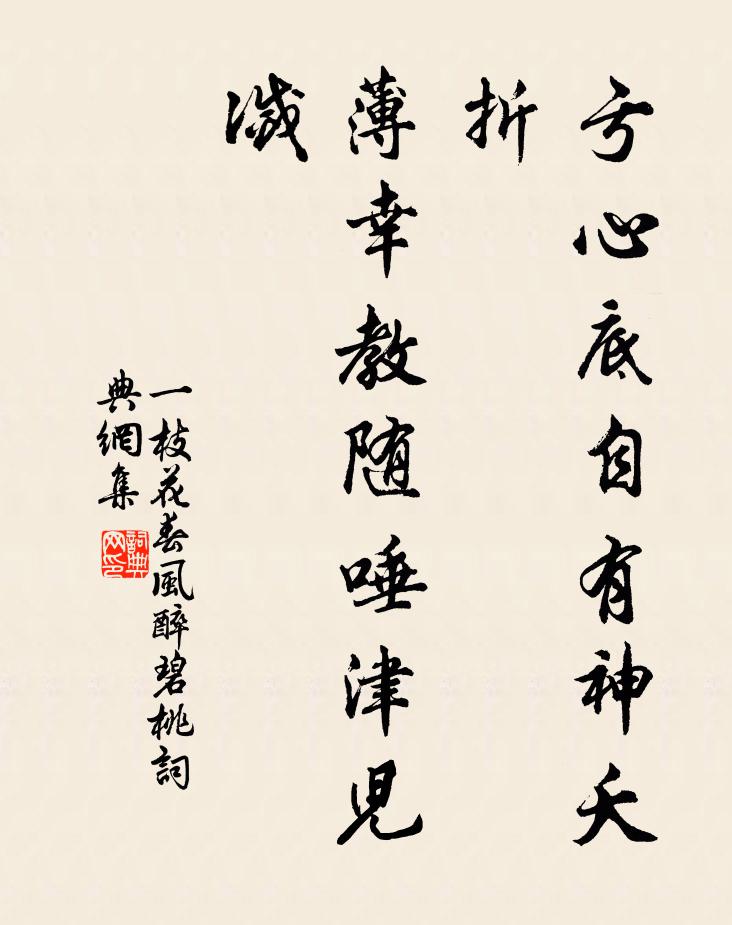 亏心底自有神夭
折
薄幸教随唾津児
滅
一枝花春風醉碧桃詞
典網集
詞典
网印